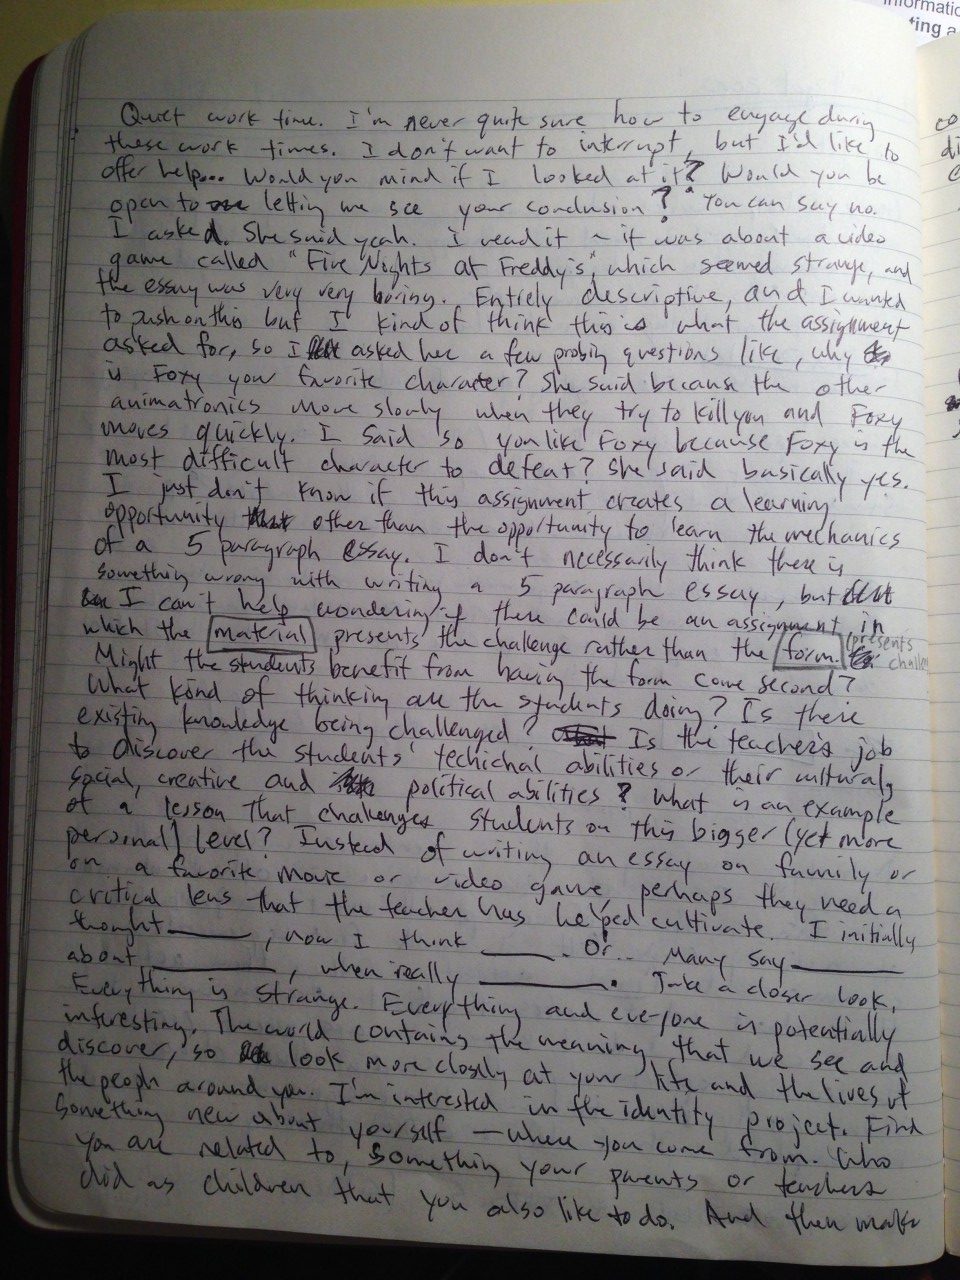 informatio
ting a
Quiet work time. I'm never quite sure how to engage during
these work times. I don't want to interrupt, but I'd like to
offer help... Would you mind if I looked at it? Would you be
open to letting me see your conclusion? You can say no.
I asked. She said yeah. I read it ~ it was about a video
game called "Five Nights at Freddy's", which seemed strange, and
the essay was very very boring. Entirely descriptive, and I wanted
to push on this but I kind of think this is what the assignment
asked for, so I asked her a few probing questions like, why
is Foxy your favorite character? She said because the other
animatronics move slowly when they try to kill you and Foxy
moves quickly. I said so you like Foxy because Foxy is the
most difficult character to defeat? She said basically yes.
I just don't know if this assignment creates a learning
opportunity other than the opportunity to learn the mechanics
of a 5 paragraph essay. I don't necessarily think there is
something wrong with writing a 5 paragraph essay, but
I can't help wondering if there could be an assignment in
which the material presents the challenge rather than the form. presents challen
Might the students benefit from having the form come second?
What kind of thinking are the students doing? Is there
existing knowledge being challenged? Is the teacher's job
to discover the students' techichal abilities or their cultural,
social, creative and political abilities? What is an example
of a lesson that challenges students on this bigger (yet more
personal) level? Instead of writing an essay on family or
on a favorite movie or video game, perhaps they need a
critical lens that the teacher has helped cultivate. I initially
thought ____, now I think ____. Or... Many say ____
about ____, when really ____. Take a closer look,
Everything is strange. Everything and everyone is potentially
interesting. The world contains the meaning that we see and
discover, so look more closely at your life and the lives of
the people around you. I'm interested in the identity project. Find
something new about yourself — where you come from. Who
you are related to, something your parents or teachers
did as children that you also like to do. And then make